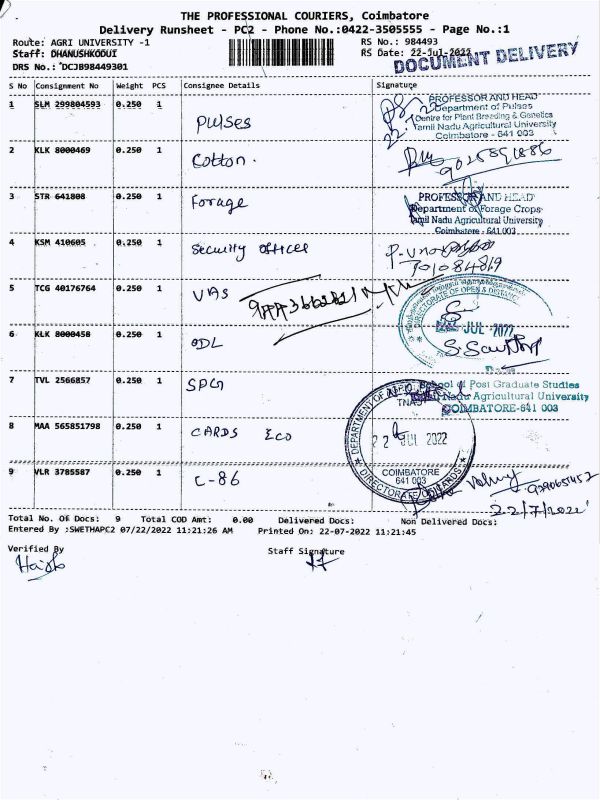 THE PROFESSIONAL COURIERS, Coimbatore
Delivery Runsheet - PC2 - Phone No.:0422-3505555 - Page No.:1
Route: AGRI UNIVERSITY -1
RS No.: 984493
Staff: DHANUSHKODUI
RS Date: 22-Jul-2022
DOCUMENT DELIVERY
DRS No.: DCJB98449301
S No Consignment No Weight PCS Consignee Details Signature
1 SLM 299804593 0.250 1 Pulses
PROFESSOR AND HEAD
Department of Pulses
Centre for Plant Breeding & Genetics
Tamil Nadu Agricultural University
Coimbatore - 641 003
2 KLK 8000469 0.250 1 Cotton.
9025891886
3 STR 641808 0.250 1 Forage
PROFESSOR AND HEAD
Department of Forage Crops
Tamil Nadu Agricultural University
Coimbatore - 641 003
4 KSM 410605 0.250 1 Security officer
5 TCG 40176764 0.250 1 VAS
DIRECTORATE OF OPEN & DISTANCE
JUL 2022
6 KLK 8000458 0.250 1 ODL
7 TVL 2566857 0.250 1 SPG
School of Post Graduate Studies
Tamil Nadu Agricultural University
COIMBATORE-641 003
8 MAA 565851798 0.250 1 CARDS ECO
TNAU
22 JUL 2022
COIMBATORE
641 003
9 VLR 3785587 0.250 1 C-86
22/7/2022
Total No. Of Docs: 9 Total COD Amt: 0.00 Delivered Docs: Non Delivered Docs:
Entered By :SWETHAPC2 07/22/2022 11:21:26 AM Printed On: 22-07-2022 11:21:45
Verified By
Staff Signature